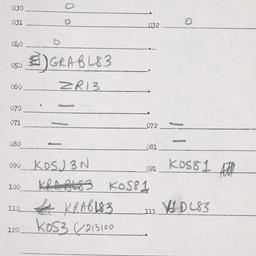 030 0
031 0 032 0
040 0
050 GRABL83
060 ZR13
070 —
071 — 072 —
080 — 081 —
090 KDSJ3N 091 KOS81
100 KRABL83 KOS81
110 KRABL83 111 DL83
120 KOS3 (/213100